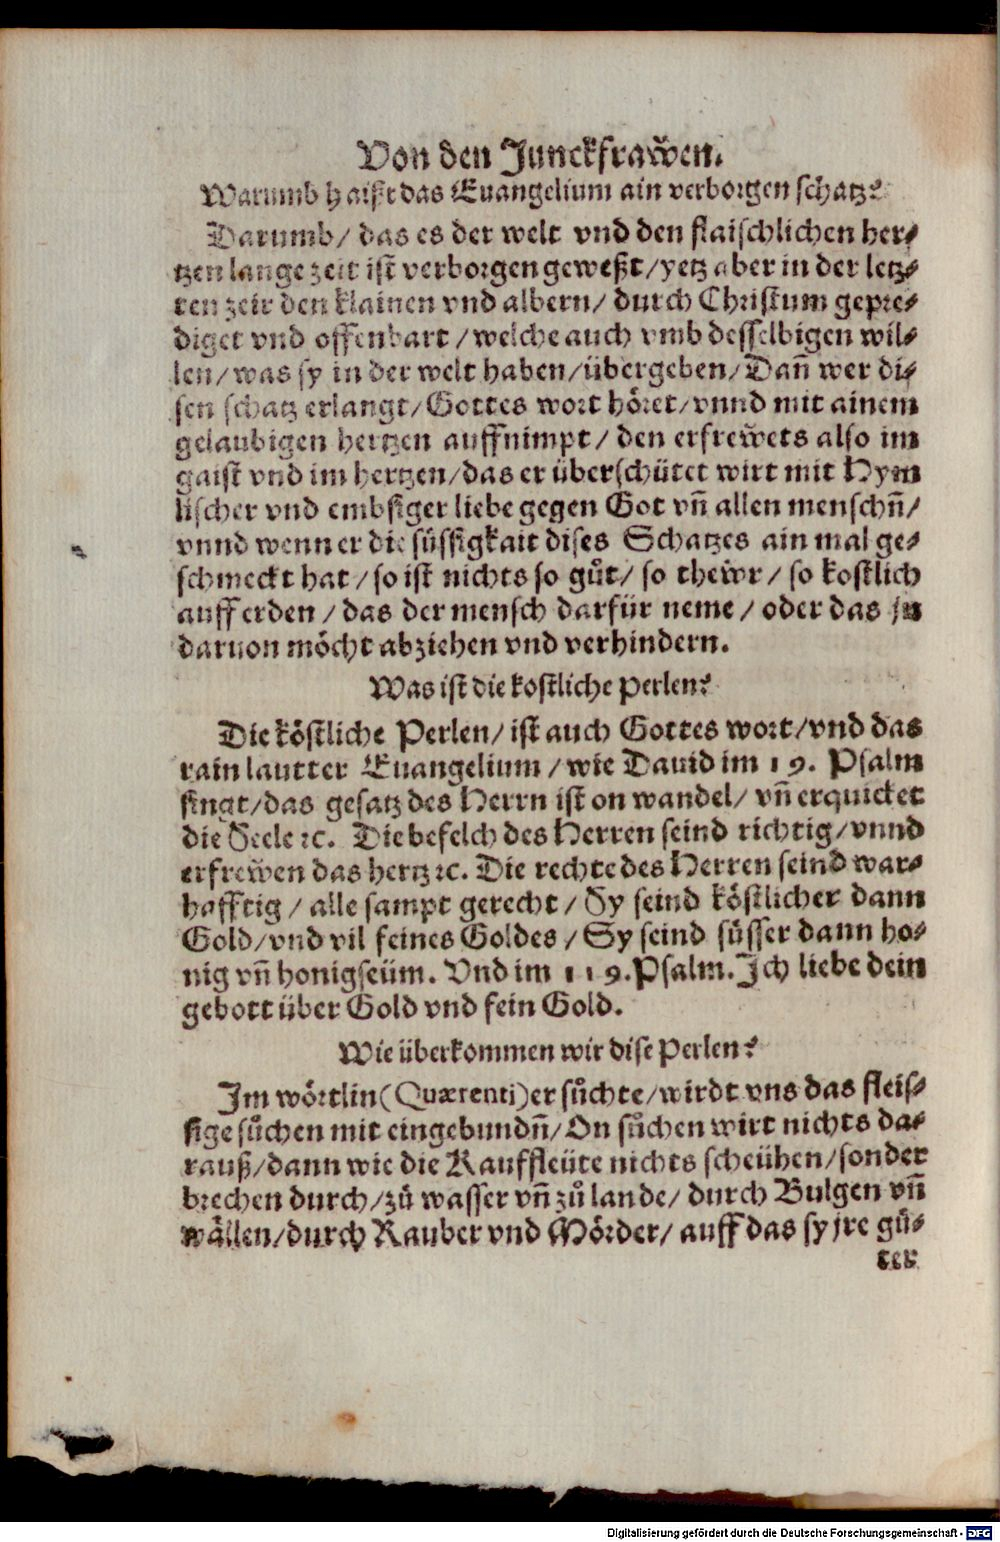 Von den Junckfraẅen.
Warumb haißt das Euangelium ain verborgen schatz?
Darumb/ das es der welt vnd den flaischlichen her⸗
tzen lange zeit ist verborgen geweßt/ yetz aber in der letz⸗
ten zeit den klainen vnd albern/ durch Christum gepre⸗
diget vnd offenbart/ welche auch vmb desselbigen wil⸗
len/ was sy in der welt haben/ übergeben/ Dañ wer di⸗
sen schatz erlangt/ Gottes wort höret/ vnnd mit ainem
gelaubigen hertzen auffnimpt/ den erfreẅets also im
gaist vnd im hertzen/ das er überschütet wirt mit Hym
lischer vnd embsiger liebe gegen Got vñ allen menschñ/
vnnd wenn er die süssigkait dises Schatzes ain mal ge⸗
schmeckt hat/ so ist nichts so gůt/ so theẅr/ so kostlich
auff erden/ das der mensch darfür neme/ oder das jn
daruon möcht abziehen vnd verhindern.
Was ist die kostliche perlen?
Die köstliche Perlen/ ist auch Gottes wort/ vnd das
rain lautter Euangelium/ wie Dauid im 19. Psalm
singt/ das gesatz des Herrn ist on wandel/ vñ erquicket
die Seele ꝛc. Die befelch des Herren seind richtig/ vnnd
erfreẅen das hertz ꝛc. Die rechte des Herren seind war⸗
hafftig/ alle sampt gerecht/ Sy seind köstlicher dann
Gold/ vnd vil feines Goldes/ Sy seind süsser dann ho⸗
nig vñ honigseüm. Vnd im 119. Psalm. Ich liebe dein
gebott über Gold vnd fein Gold.
Wie überkommen wir dise Perlen?
Im wörtlin (Quærenti) er sůchte/ wirdt vns das fleis⸗
sige sůchen mit eingebundñ/ On sůchen wirt nichts da⸗
rauß/ dann wie die Kauffleüte nichts scheühen/ sonder
brechen durch/ zů wasser vñ zů lande/ durch Bulgen vñ
wällen/ durch Rauber vnd Mörder/ auff das sy jre gů⸗
ter
Digitalisierung gefördert durch die Deutsche Forschungsgemeinschaft - DFG